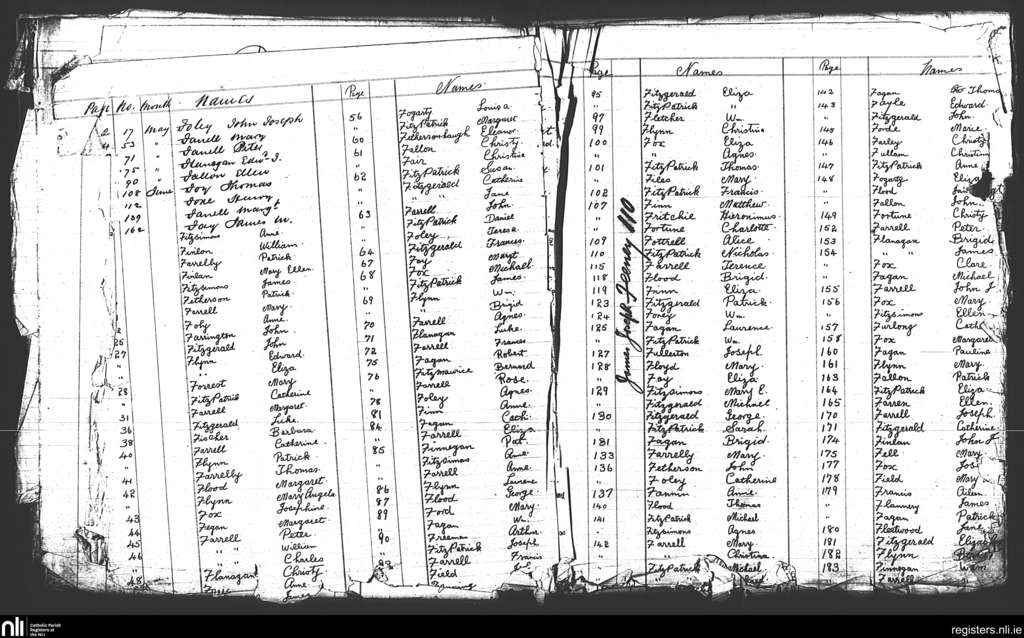 Page No. Month Names
2 17 May Foley John Joseph
4 53 " Farrell Mary
71 " Farrell Peter
75 " Flanagan Edw. J.
90 " Fallon Ellen
108 June Foy Thomas
112 Foxe Henry
139 Farrell Margt
162 Fay James M.
Fitzsimons Anne
Finlon William
Farrelly Patrick
Finlan Mary Ellen
Fitzsimons James
Fetherson Patrick
Farrell Mary
Foly Anne
Farrington John
26 Fitzgerald John
27 Flynn Edward
" " Eliza
" Forrest Mary
28 FitzPatrick Catherine
" Farrell Margaret
31 Fitzgerald Luke
36 Fischer Barbara
38 Farrell Catherine
40 Flynn Patrick
" Farrelly Thomas
41 Flood Margaret
42 Flynn Mary Angela
" Fox Josephine
43 Fegan Margaret
44 Farrell Peter
45 " " William
46 " " Charles
" Flanagan Christy
48 Anne
Page Names
56 Fogarty Louisa
" FitzPatrick Margaret
60 Fetherstonhaugh Eleanor
61 Fallon Christy
" Fair Christina
62 FitzPatrick Susan
" Fitzgerald Catherine
" " " Jane
" " John
63 Farrell Daniel
" FitzPatrick Teresa
" Foley Frances
64 Fitzgerald Margt
67 Fay Michael
68 Fox James
" FitzPatrick Wm.
69 Flynn Brigid
" " Agnes
70 Farrell Luke
71 Flanagan Frances
72 Farrell Robert
75 Fagan Bernard
76 Fitzmaurice Rose
" Farrell Agnes
78 Foley Anne
81 Finn Cath.
84 Fagan Eliza
" Farrell Pat.
85 Finnegan Anne
" Fitzsimons Anne
" Farrell Laurence
86 Flynn George
87 Flood Mary
89 Ford Wm.
" Fagan Arthur
90 Freeman Joseph
" FitzPatrick Francis
Farrell
Field
James Joseph Feeney 110
Page Names
95 Fitzgerald Eliza
" FitzPatrick "
97 Fletcher Wm.
99 Flynn Christina
100 Fox Eliza
" " Agnes
101 FitzPatrick Thomas
" Files Mary
102 FitzPatrick Francis
107 Finn Matthew
" Fritchie Heronimus
" Fortune Charlotte
109 Fottrell Alice
110 FitzPatrick Nicholas
115 Farrell Terence
118 Flood Brigid
119 Finn Eliza
123 Fitzgerald Patrick
124 Foney Wm.
125 Fagan Laurence
" FitzPatrick Wm.
127 Fullerton Joseph
128 Floyd Mary
" Fay Eliza
129 Fitzsimons Mary E.
" Fitzgerald Michael
130 Fitzgerald George
" FitzPatrick Sarah
131 Fagan Brigid
133 Farrelly Mary
136 Fetherson John
" Foley Catherine
137 Fannin Annie
140 Flood Thomas
141 FitzPatrick Michael
Fitzsimons Agnes
142 Farrell Mary
" " Christina
" FitzPatrick Michael
Page Names
142 Fagan Thomas
143 Fayle Edward
" Fitzgerald John
145 Forde Marie
146 Farley Christy
" Fullam Christina
147 FitzPatrick Anne
148 Fogarty Eliza
" Flood
" Fallon John
149 Fortune Christy
152 Farrell Peter
153 Flanagan Brigid
154 " " James
" Fox Clare
" Fagan Michael
155 Farrell John J.
156 Fox Mary
" Fitzsimons Ellen
157 Furlong Cath
158 Fox Margaret
160 Fagan Pauline
161 Flynn Mary
163 Fallon Patrick
164 FitzPatrick Eliza
165 Farren Ellen
170 Farrell Joseph
171 Fitzgerald Catherine
174 Finlan John J.
175 Fell Mary
177 Fox Jos
178 Field Mary
179 Francis Aileen
" Flannery James
" Fagan Patrick
180 Fleetwood Jane
181 Fitzgerald Eliza
182 Flynn
183 Finnegan Wm
" Farrell
nli Catholic Parish Registers at the NLI
registers.nli.ie